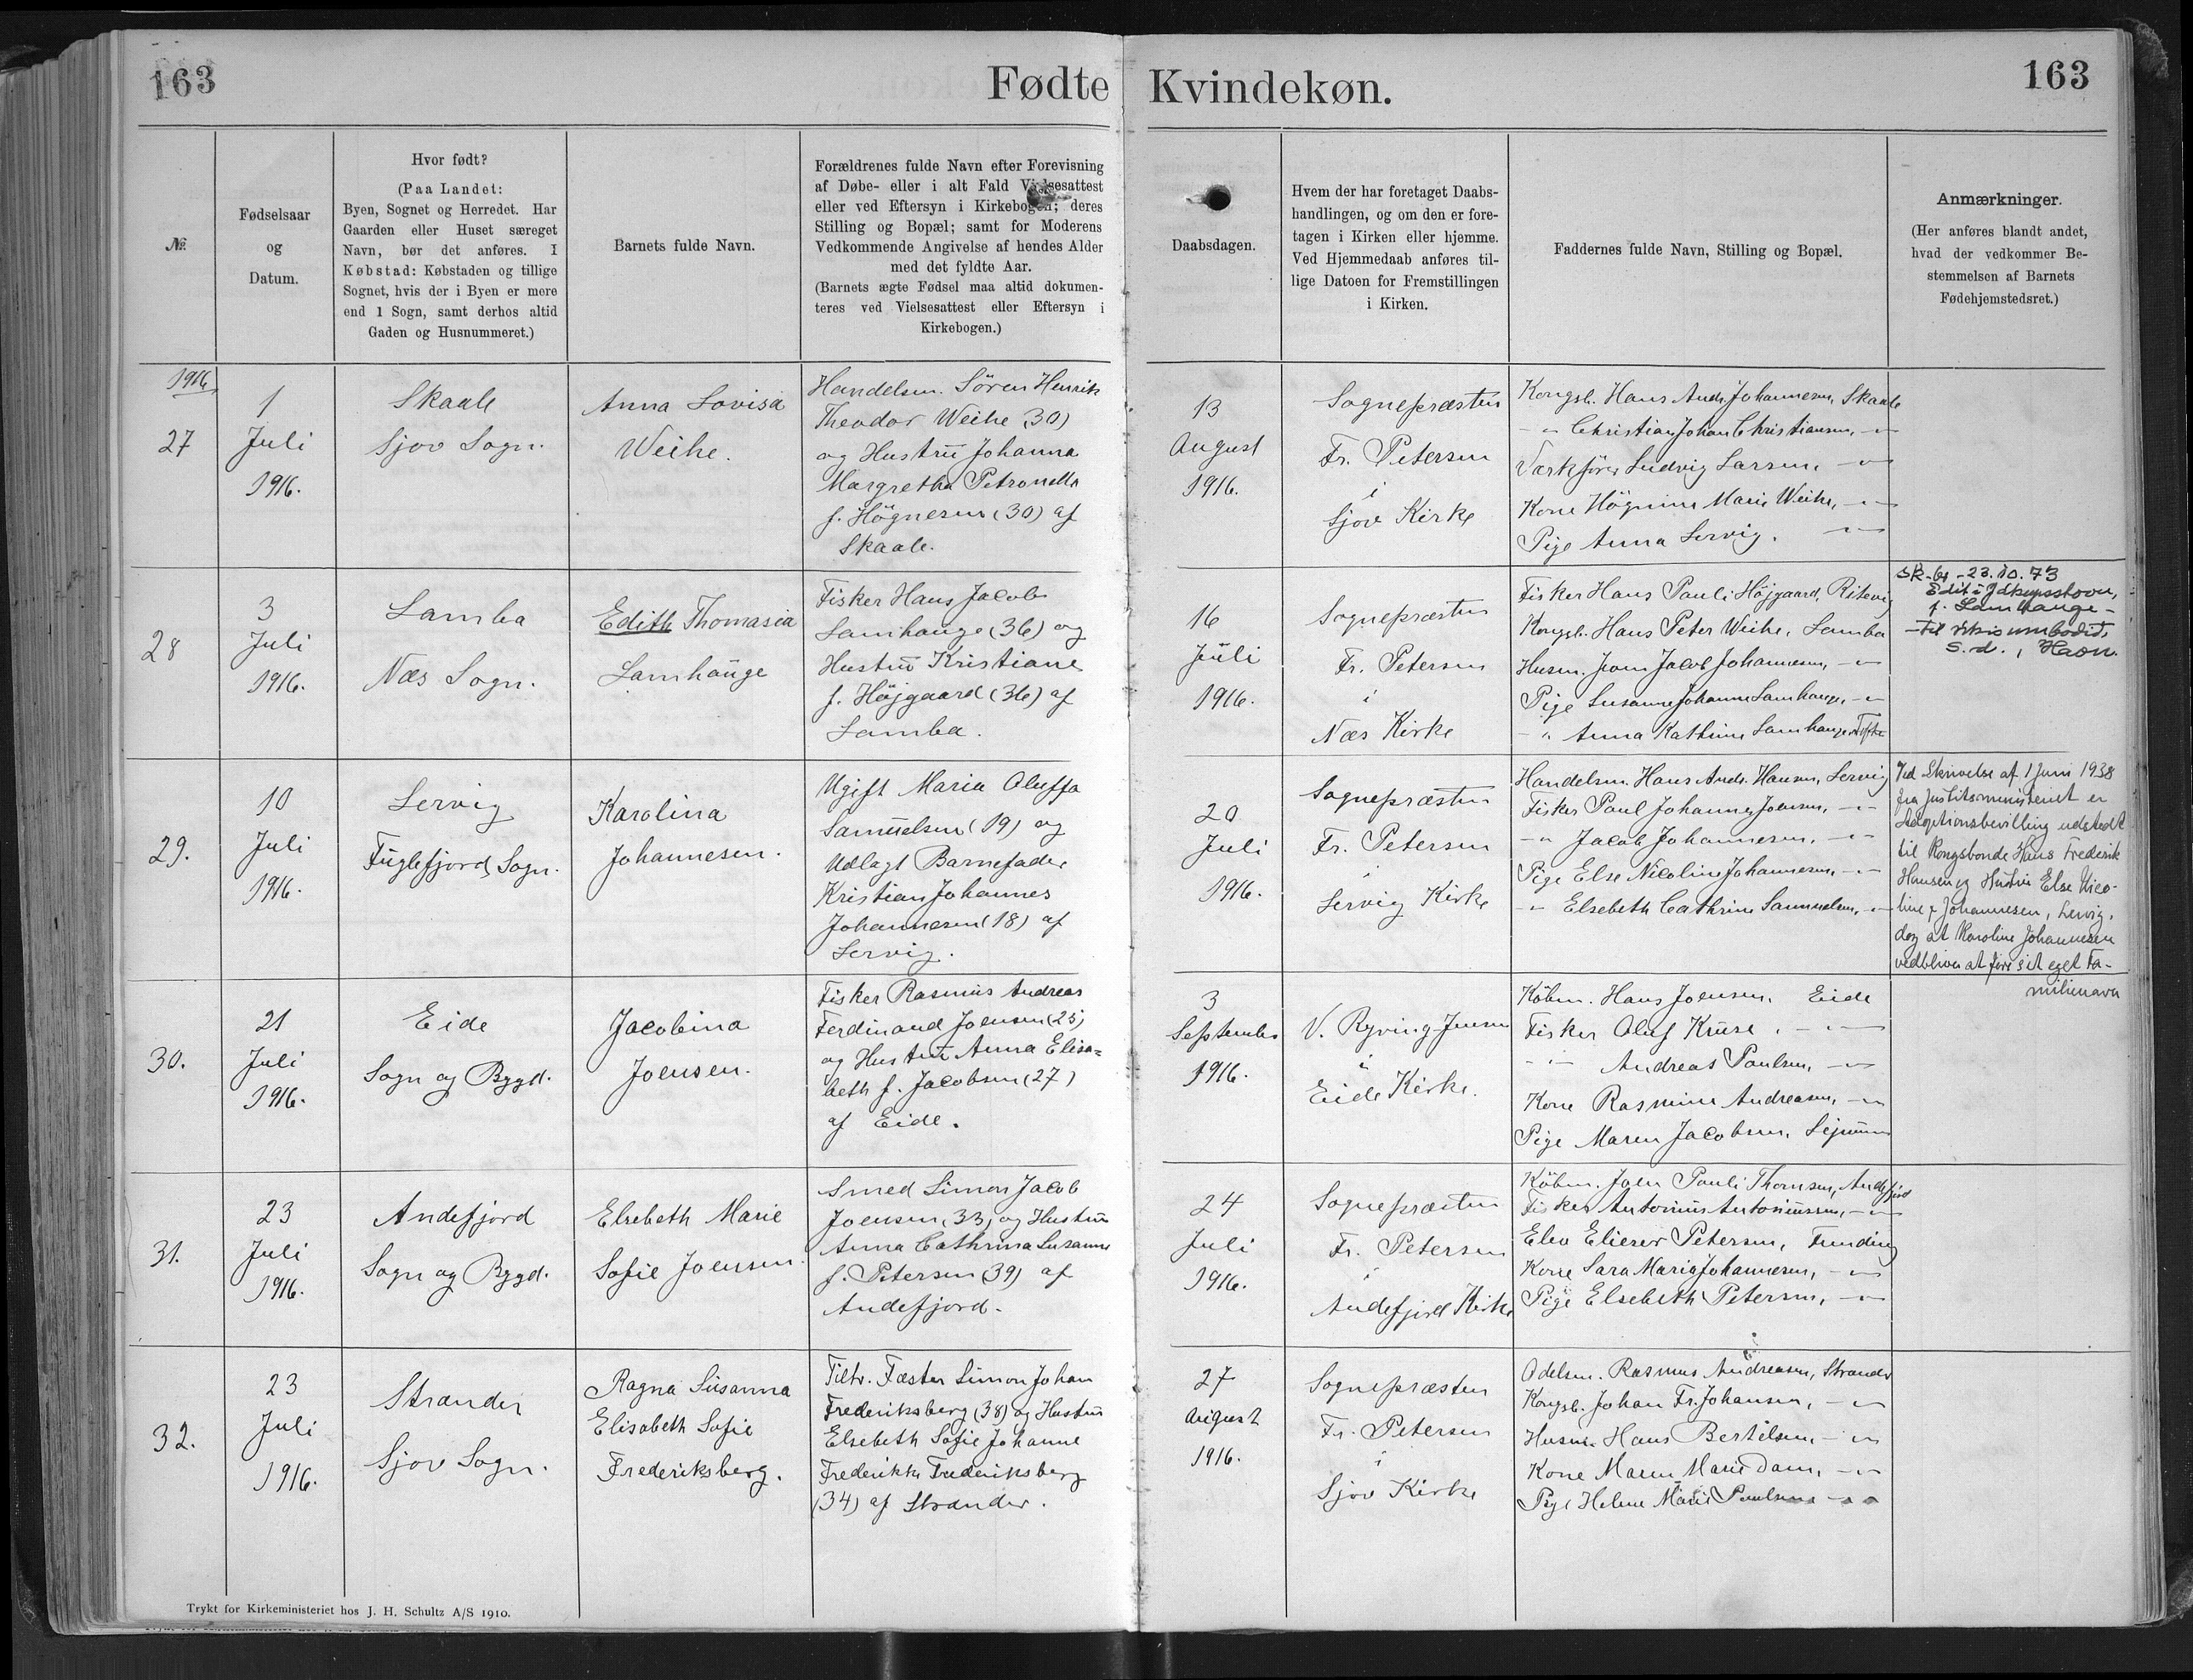 163
Fødte Kvindekøn.
163
№
Fødselsaar
og
Datum.
Hvor født?
(Paa Landet:
Byen, Sognet og Herredet. Har
Gaarden eller Huset særeget
Navn, bør det anføres. I
Købstad: Købstaden og tillige
Sognet, hvis der i Byen er mere
end 1 Sogn, samt derhos altid
Gaden og Husnummeret.)
Barnets fulde Navn.
Forældrenes fulde Navn efter Forevisning
af Døbe- eller i alt Fald Vielsesattest
eller ved Eftersyn i Kirkebogen; deres
Stilling og Bopæl; samt for Moderens
Vedkommende Angivelse af hendes Alder
med det fyldte Aar.
(Barnets ægte Fødsel maa altid dokumen-
teres ved Vielsesattest eller Eftersyn i
Kirkebogen.)
Daabsdagen.
Hvem der har foretaget Daabs-
handlingen, og om den er fore-
tagen i Kirken eller hjemme.
Ved Hjemmedaab anføres til-
lige Datoen for Fremstillingen
i Kirken.
Faddernes fulde Navn, Stilling og Bopæl.
Anmærkninger.
(Her anføres blandt andet,
hvad der vedkommer Be-
stemmelsen af Barnets
Fødehjemstedsret.)
1916
27
1
Juli
1916.
Skaale
Sjov Sogn.
Anna Lovisa
Weihe.
Handelsm. Søren Henrik
Theodor Weihe (30)
og Hustru Johanna
Margretha Petronella
f. Högnesen (30) af
Skaale.
13
August
1916.
Sognepræsten
Fr. Petersen
i
Sjov Kirke
Kongsb. Hans Andr. Johannesen, Skaale
-"- Christian Johan Christiansen, -"-
Værkfører Ludvig Larsen, -"-
Kone Högnine Marie Weihe, -"-
Pige Anna Lervig, -"-
28
3
Juli
1916.
Lamba
Næs Sogn.
Edith Thomasia
Lamhauge
Fisker Hans Jacob
Lamhauge (36) og
Hustru Kristiane
f. Höjgaard (36) af
Lamba.
16
Juli
1916.
Sognepræsten
Fr. Petersen
i
Næs Kirke
Fisker Hans Pauli Höjgaard, Ritevig
Kongsb. Hans Peter Weihe, Lamba
Husm. Joen Jacob Johannesen, -"-
Pige Susanne Johanne Lamhauge, -"-
-"- Anna Kathrine Lamhauge,
Sk-br - 23.10.73
Edit í Jákupsstovu,
f. Lamhauge -
- til ríkisumboðið,
s.d., Havn.
29.
10
Juli
1916.
Lervig
Fuglefjord Sogn.
Karolina
Johannesen.
Ugift Maria Oluffa
Samuelsen (19) og
Udlagt Barnefader
Kristian Johannes
Johannesen (18) af
Lervig.
20
Juli
1916.
Sognepræsten
Fr. Petersen
i
Lervig Kirke
Handelsm. Hans Andr. Hansen, Lervig
Fisker Poul Johannes Joensen, -"-
-"- Jacob Johannesen, -"-
Pige Else Nicoline Johannesen, -"-
-"- Elsebeth Cathrine Samuelsen, -"-
Ved Skrivelse af 1 Juni 1938
fra Justitsministeriet er
Adoptionsbevilling udstedt
til Kongsbonde Hans Frederik
Hansen og Hustru Else Nico-
line f. Johannesen, Lervig,
dog at Karoline Johannesen
vedbliver at føre sit eget Fa-
milienavn
30.
21
Juli
1916.
Eide
Sogn og Bygd.
Jacobina
Joensen.
Fisker Rasmus Andreas
Ferdinand Joensen (25)
og Hustru Anna Elisa=
beth f. Jacobsen (27)
af Eide.
3
September
1916.
V. Ryving-Jensen
i
Eide Kirke.
Købm. Hans Joensen, Eide
Fisker Oluf Kruse, -"-
-"- Andreas Poulsen, -"-
Kone Rasmine Andreasen, -"-
Pige Maren Jacobsen,
31.
23
Juli
1916.
Andefjord
Sogn og Bygd.
Elsebeth Marie
Sofie Joensen.
Smed Simon Jacob
Joensen (33) og Hustru
Anna Cathrina Susanne
f. Petersen (39) af
Andefjord.
24
Juli
1916.
Sognepræsten
Fr. Petersen
i
Andefjord Kirke
Købm. Joen Pauli Thomsen, Andefjord
Fisker Antonius Antoniussen, -"-
Elev Elieser Petersen, Funding
Kone Sara Maria Johannesen, -"-
Pige Elsebeth Petersen, -"-
32.
23
Juli
1916.
Strander
Sjov Sogn.
Ragna Susanna
Elisabeth Sofie
Frederiksberg.
Tiltr. Fæster Simon Johan
Frederiksberg (38) og Hustru
Elsebeth Sofie Johanne
Frederikke Frederiksberg
(34) af Strander.
27
August
1916.
Sognepræsten
Fr. Petersen
i
Sjov Kirke
Odelsm. Rasmus Andreasen, Strander
Kongsb. Johan Fr. Johansen, -"-
Husm. Hans Bertelsen, -"-
Kone Maren Marie Dam, -"-
Pige Helene Marie Poulsen -"-
Trykt for Kirkeministeriet hos J. H. Schultz A/S 1910.